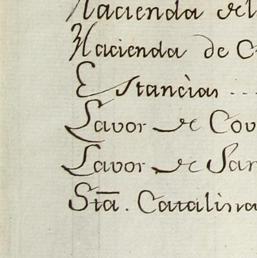 Hacienda del
Hacienda de C
Estancias ...
Lavor de Cov
Lavor de San
Sta. Catalina